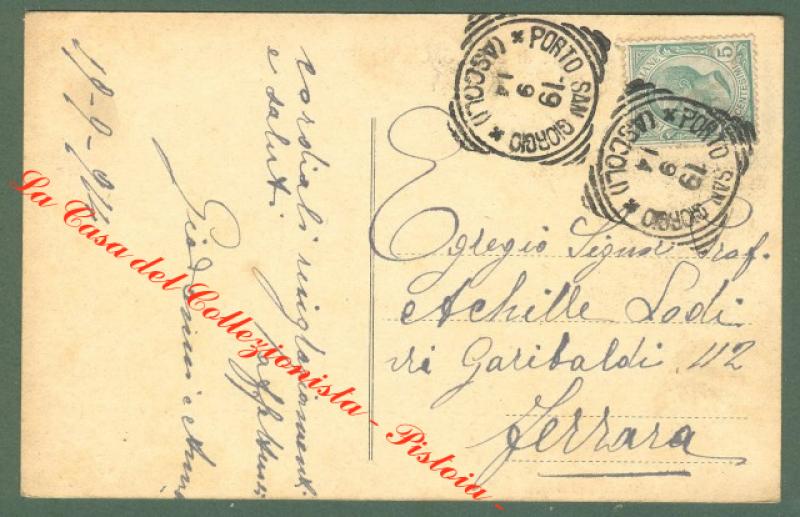 18-9-914
Cordiali ringraziamenti
e saluti
PORTO SAN GIORGIO * (ASCOLI) *
19
9
14
PORTO SAN GIORGIO * (ASCOLI) *
19
9
14
5
Egregio Signor Prof.
Achille Lodi
via Garibaldi 112
Ferrara
La Casa del Collezionista - Pistoia -